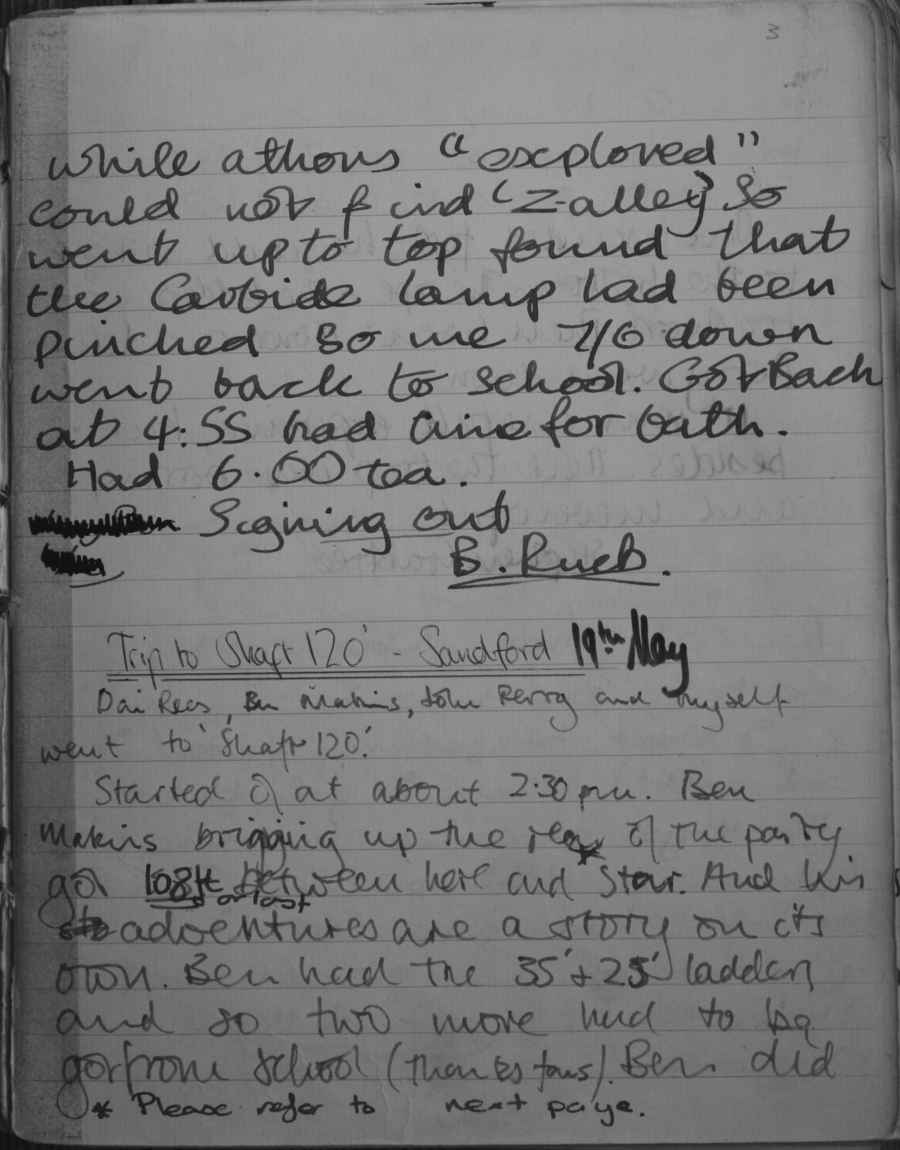 3
while athors "oxcplored"
could not find (Z-alley) So
went up to top found that
the Carbide lamp had been
pinched So me 7/6 down
went back to school. Got Back
at 4:55 had time for bath.
Had 6.00 tea.
Signing out
B. Rueb.
Trip to Shaft 120' - Sandford 19th May
Dai Rees, Ben Makins, John Perry and myself
went to 'Shaft 120'.
Started of at about 2:30 pm. Ben
Makins brigging up the rear* of the party
got between here and Star. And his
or last
adventures are a story on its
own. Ben had the 35' + 25' ladders
and so two more had to be
got from school (thanks fans). Ben did
* Please refer to next paige.